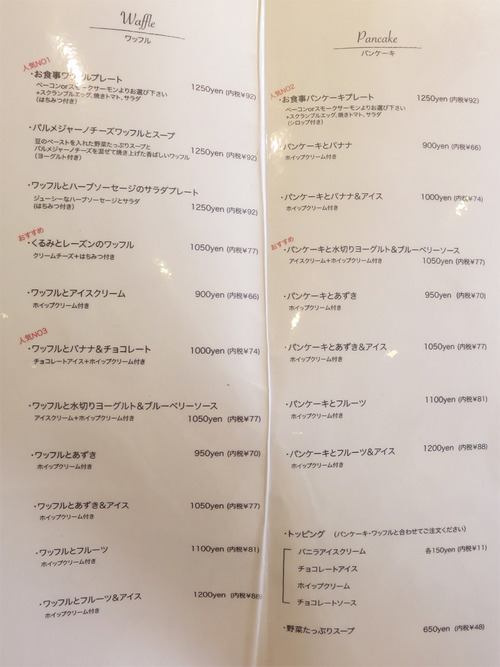 Waffle
ワッフル
人気NO1
・お食事ワッフルプレート
1250yen (内税¥92)
ベーコンorスモークサーモンよりお選び下さい
+スクランブルエッグ,焼きトマト,サラダ
(はちみつ付き)
・パルメジャーノチーズワッフルとスープ
豆のペーストを入れた野菜たっぷりスープと
パルメジャーノチーズを混ぜて焼き上げた香ばしいワッフル
1250yen (内税¥92)
(ヨーグルト付き)
・ワッフルとハーブソーセージのサラダプレート
ジューシーなハーブソーセージとサラダ
(はちみつ付き)
1250yen (内税¥92)
おすすめ
・くるみとレーズンのワッフル
1050yen (内税¥77)
クリームチーズ+はちみつ付き
・ワッフルとアイスクリーム
900yen (内税¥66)
ホイップクリーム付き
人気NO3
・ワッフルとバナナ&チョコレート
1000yen (内税¥74)
チョコレートアイス+ホイップクリーム付き
・ワッフルと水切りヨーグルト&ブルーベリーソース
アイスクリーム+ホイップクリーム付き
1050yen (内税¥77)
・ワッフルとあずき
950yen (内税¥70)
ホイップクリーム付き
・ワッフルとあずき&アイス
1050yen (内税¥77)
ホイップクリーム付き
・ワッフルとフルーツ
1100yen (内税¥81)
ホイップクリーム付き
・ワッフルとフルーツ&アイス
1200yen (内税¥88)
ホイップクリーム付き
Pancake
パンケーキ
人気NO2
・お食事パンケーキプレート
1250yen (内税¥92)
ベーコンorスモークサーモンよりお選び下さい
+スクランブルエッグ,焼きトマト,サラダ
(シロップ付き)
・パンケーキとバナナ
900yen (内税¥66)
ホイップクリーム付き
・パンケーキとバナナ&アイス
1000yen (内税¥74)
ホイップクリーム付き
おすすめ
・パンケーキと水切りヨーグルト&ブルーベリーソース
アイスクリーム+ホイップクリーム付き
1050yen (内税¥77)
・パンケーキとあずき
950yen (内税¥70)
ホイップクリーム付き
・パンケーキとあずき&アイス
1050yen (内税¥77)
ホイップクリーム付き
・パンケーキとフルーツ
1100yen (内税¥81)
ホイップクリーム付き
・パンケーキとフルーツ&アイス
1200yen (内税¥88)
ホイップクリーム付き
・トッピング (パンケーキ・ワッフルと合わせてご注文ください)
バニラアイスクリーム
各150yen (内税¥11)
チョコレートアイス
ホイップクリーム
チョコレートソース
・野菜たっぷりスープ
650yen (内税¥48)